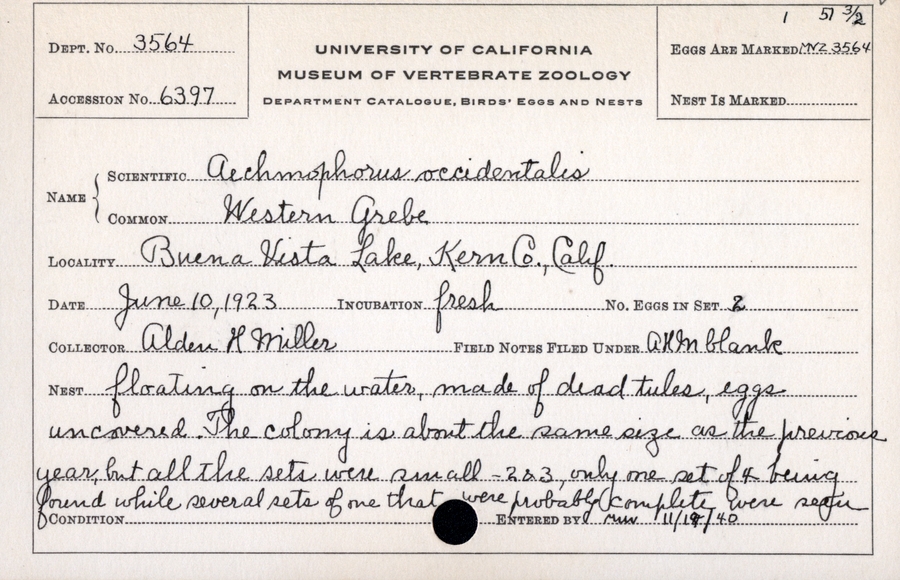 1 51 3/2
Dept. No. 3564
UNIVERSITY OF CALIFORNIA
MUSEUM OF VERTEBRATE ZOOLOGY
Department Catalogue, Birds' Eggs and Nests
Accession No. 6397
Eggs Are Marked MVZ 3564
Nest Is Marked
Name
Scientific Aechmophorus occidentalis
Common Western Grebe
Locality Buena Vista Lake, Kern Co., Calif
Date June 10, 1923 Incubation fresh No. Eggs in Set 2
Collector Alden H Miller Field Notes Filed Under AHM blank
Nest floating on the water, made of dead tules, eggs
uncovered. The colony is about the same size as the previous
year, but all the sets were small - 2 & 3, only one set of 4 being
found while several sets of one that were probably complete were seen
Condition Entered by 11/19/40